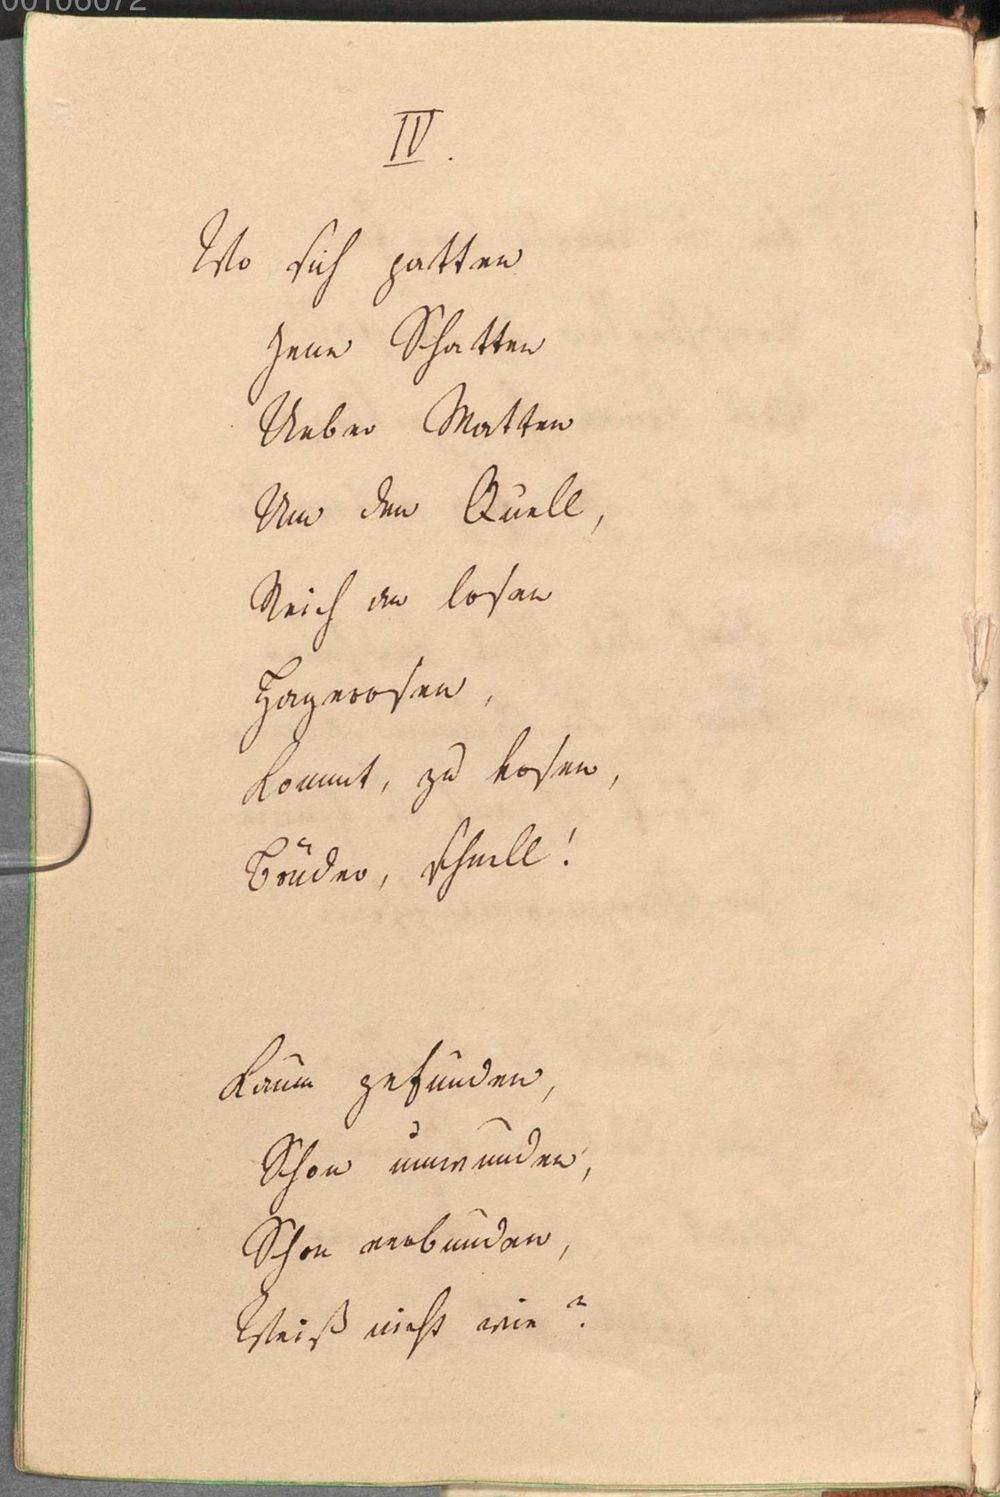 00106072
IV.
Wo sich gatten
Jene Schatten
Ueber Matten
Um den Quell,
Reich an losen
Hagerosen,
Kommt, zu kosen,
Brüder, schnell!
Kaum gefunden,
Schon umwunden,
Schon verbunden,
Weiß nicht wie?